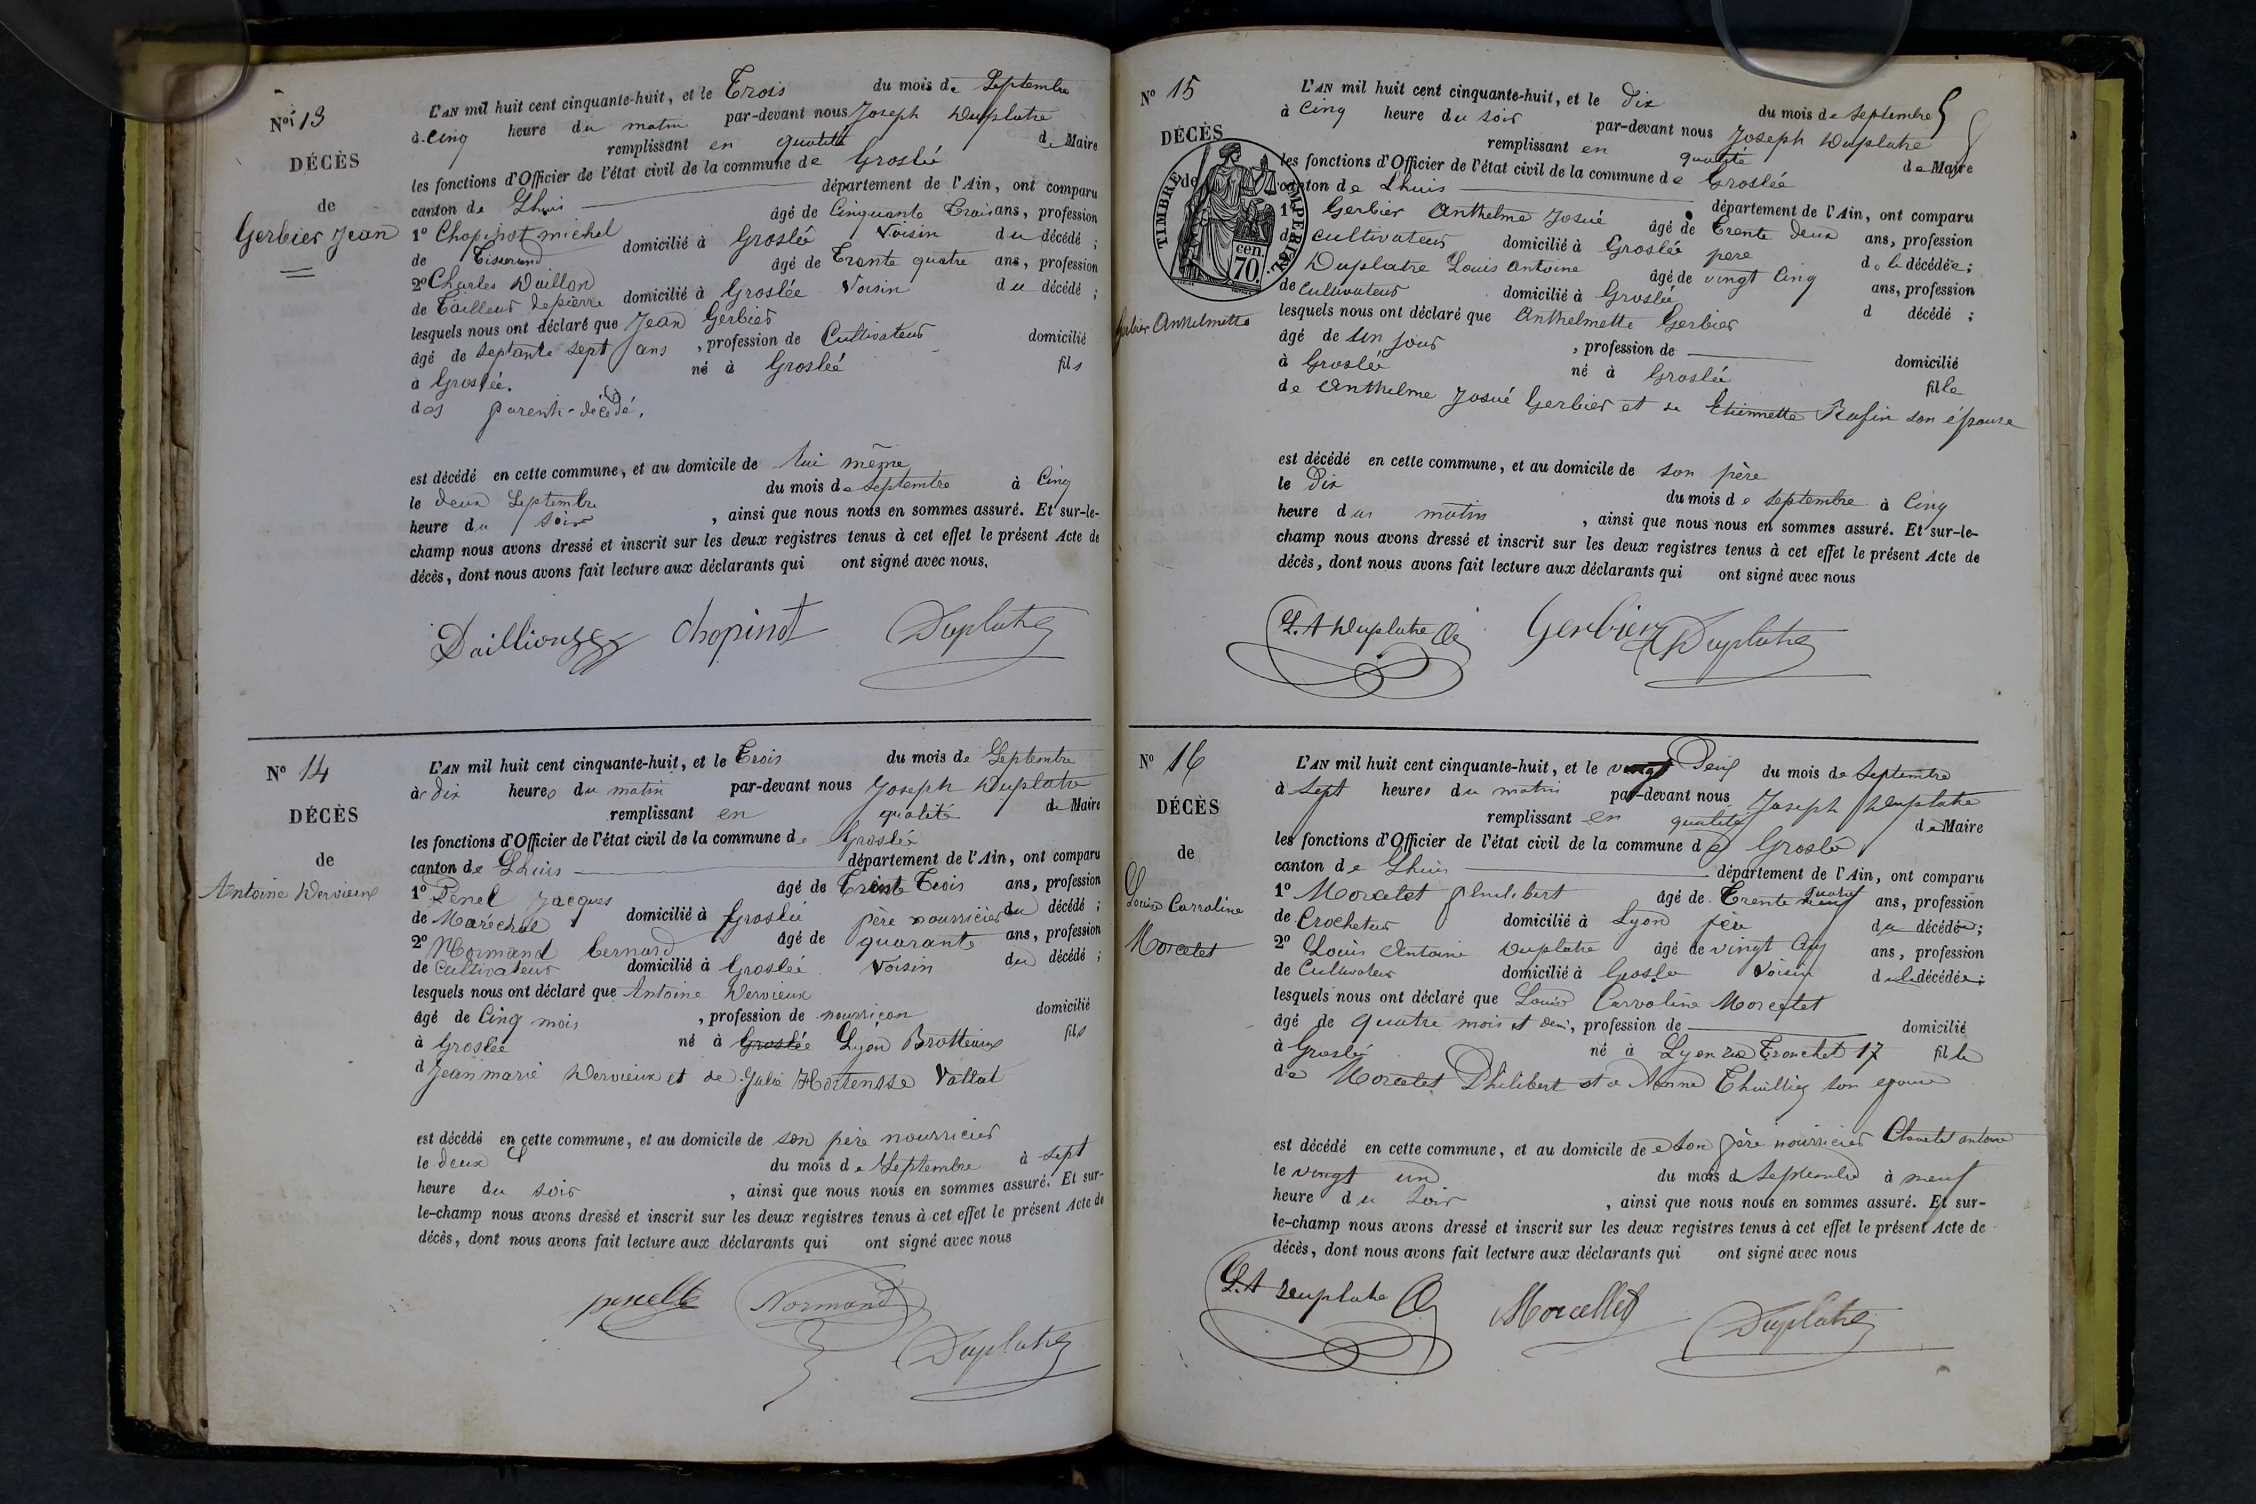 N° 13
DÉCÈS
de
Gerbier Jean
L'AN mil huit cent cinquante-huit, et le Trois du mois de Septembre
à Cinq heure du matin par-devant nous Joseph Duplatre
remplissant en qualité de Maire
les fonctions d'Officier de l'état civil de la commune de Groslée
canton de Lhuis département de l'Ain, ont comparu
1° Chopinot michel âgé de Cinquante Trois ans, profession
de Tisserand domicilié à Groslée Voisin du décédé ;
2° Charles Daillon âgé de Trente quatre ans, profession
de Tailleur de pierre domicilié à Groslée Voisin du décédé ;
lesquels nous ont déclaré que Jean Gerbier
âgé de septante sept ans, profession de Cultivateur domicilié
à Groslée. né à Groslée fils
des parents décédé.
est décédé en cette commune, et au domicile de lui même
le deux Septembre du mois de Septembre à Cinq
heure du soir, ainsi que nous nous en sommes assuré. Et sur-le-
champ nous avons dressé et inscrit sur les deux registres tenus à cet effet le présent Acte de
décès, dont nous avons fait lecture aux déclarants qui ont signé avec nous.
Chopinot Duplatre
N° 14
DÉCÈS
de
Antoine Dervieux
L'AN mil huit cent cinquante-huit, et le Trois du mois de Septembre
à dix heures du matin par-devant nous Joseph Duplatre
remplissant en qualité de Maire
les fonctions d'Officier de l'état civil de la commune de Groslée
canton de Lhuis département de l'Ain, ont comparu
1° Penel Jacques âgé de Trente Trois ans, profession
de Maréchal domicilié à Groslée père nourricier du décédé ;
2° Normand bernard âgé de quarante ans, profession
de Cultivateur domicilié à Groslée Voisin du décédé ;
lesquels nous ont déclaré que Antoine Dervieux
âgé de Cinq mois, profession de nourriçon domicilié
à Groslée né à Groslée Lyon Brotteaux fils
d Jean marie Dervieux et de Julie Hortensse Vallat
est décédé en cette commune, et au domicile de son père nourricier
le deux du mois de Septembre à sept
heure du soir, ainsi que nous nous en sommes assuré. Et sur-
le-champ nous avons dressé et inscrit sur les deux registres tenus à cet effet le présent Acte de
décès, dont nous avons fait lecture aux déclarants qui ont signé avec nous
penelle Normand
Duplatre
N° 15
DÉCÈS
de
TIMBRE IMPERIAL
70 cen.
Gerbier Anthelmette
L'AN mil huit cent cinquante-huit, et le dix du mois de Septembre
à Cinq heure du soir par-devant nous Joseph Duplatre
remplissant en qualité de Maire
les fonctions d'Officier de l'état civil de la commune de Groslée
canton de Lhuis département de l'Ain, ont comparu
1° Gerbier Anthelme Josué âgé de Trente deux ans, profession
de Cultivateur domicilié à Groslée père de la décédée ;
Duplatre Louis Antoine âgé de vingt Cinq ans, profession
de Cultivateur domicilié à Groslée d décédé ;
lesquels nous ont déclaré que Anthelmette Gerbier
âgé de Un jour, profession de domicilié
à Groslée né à Groslée fille
de Anthelme Josué Gerbier et de Etiennette Rafin son épouse
est décédé en cette commune, et au domicile de son père
le Dix du mois de Septembre à Cinq
heure du matin, ainsi que nous nous en sommes assuré. Et sur-le-
champ nous avons dressé et inscrit sur les deux registres tenus à cet effet le présent Acte de
décès, dont nous avons fait lecture aux déclarants qui ont signé avec nous
L. A Duplatre Gerbier Duplatre
N° 16
DÉCÈS
de
Louise Carroline
Morcetet
L'AN mil huit cent cinquante-huit, et le vingt Deux du mois de Septembre
à Sept heures du matin par-devant nous Joseph Duplatre
remplissant en qualité de Maire
les fonctions d'Officier de l'état civil de la commune de Groslée
canton de Lhuis département de l'Ain, ont comparu
1° Morcetet philibert âgé de Trente ans, profession
de Crocheteur domicilié à Lyon père du décédée ;
2° Louis Antoine Duplatre âgé de vingt Cinq ans, profession
de Cultivateur domicilié à Groslée Voisin de la décédée ;
lesquels nous ont déclaré que Louise Carroline Morcetet
âgé de quatre mois et demi, profession de domicilié
à Groslée né à Lyon rue Tronchet 17 fille
de Morcetet Philibert et de Anne Thuillier son epouse
est décédé en cette commune, et au domicile de son père nourricier
le vingt un du mois de Septembre à neuf
heure du Soir, ainsi que nous nous en sommes assuré. Et sur-
le-champ nous avons dressé et inscrit sur les deux registres tenus à cet effet le présent Acte de
décès, dont nous avons fait lecture aux déclarants qui ont signé avec nous
L. A Duplatre Morcellet Duplatre